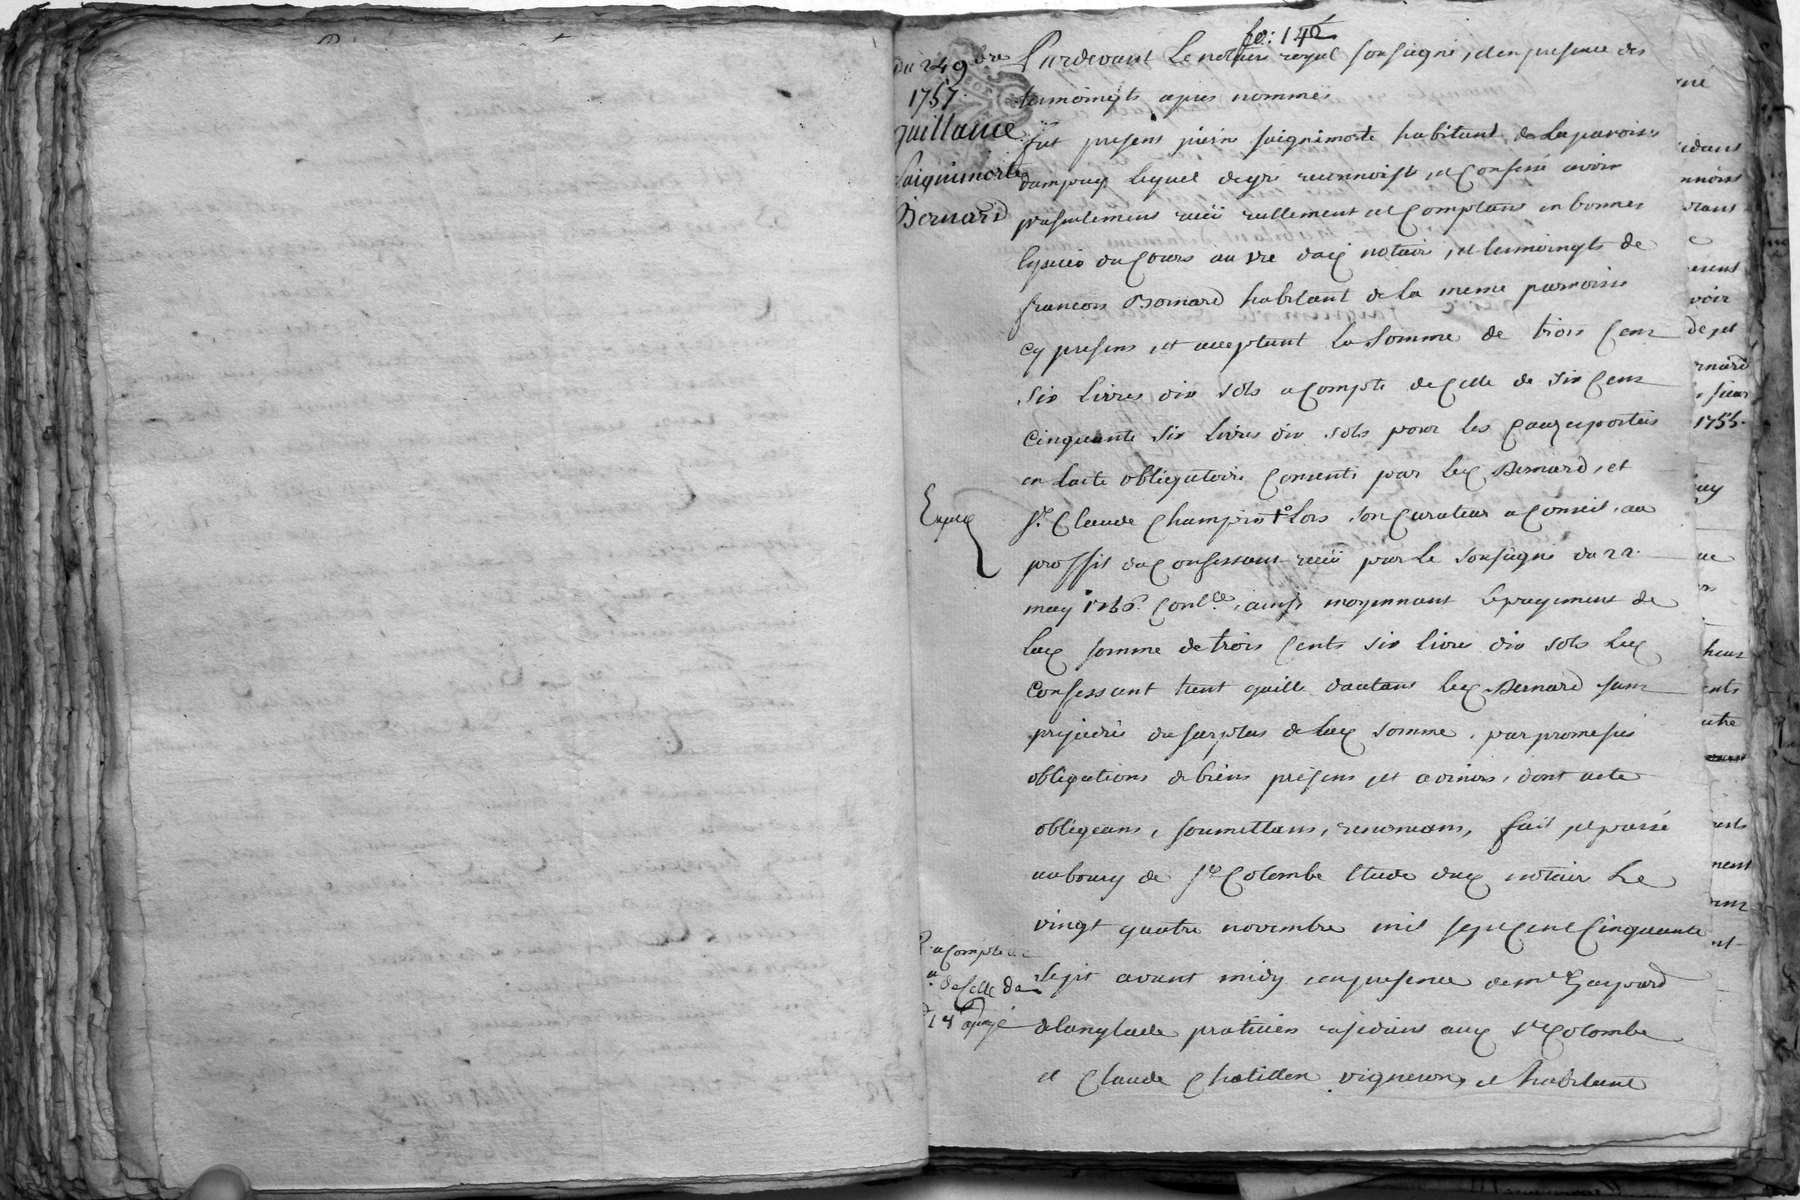 fo: 142
du 24 9bre
1757
quillance
Saiquimorte
Bernard
Pardevant Le notaire royal soussigné, et en presence des
temoingts apres nommés
fut present pierre saiquimorte habitant de La paroisse
dampuy lequel de gre reconnoist, et Confesse avoir
presentement reciu reellement et Comptant en bonnes
Especes du Cours au vre dud notaire, et temoingts de
francois Bernard habitant de la meme parroisse
cy present, et acceptant La Somme de trois Cent
six Livres dix sols a Compte de Celle de six Cent
Cinquante six Livres dix sols pour les Causes portées
en Lacte obligatoire Consenti par Led Bernard, et
Sr. Claude Champin Lors son Curateur a Conseil, au
proffit du Confessant reciu par Le soussigné du 22
may Conlce, ainsi moyennant Le payement de
Lad somme de trois Cents six livres dix sols Led
Confessant tient quitte dautant Led Bernard sans
prejudice du surplus de Lad somme, par promesses
obligations de biens presens, et avenirs, dont acte
obligeans, soumettans, renoncans, fait et passé
au bourg de Ste Colombe Etude dud notaire Le
vingt quatre novembre mil sept Cent Cinquante
sept avant midy en presence de me Gaspard
delanglade praticien residant aud Ste Colombe
et Claude Chatillon vigneron, et habitant
Exped
a Compte
de Celle de